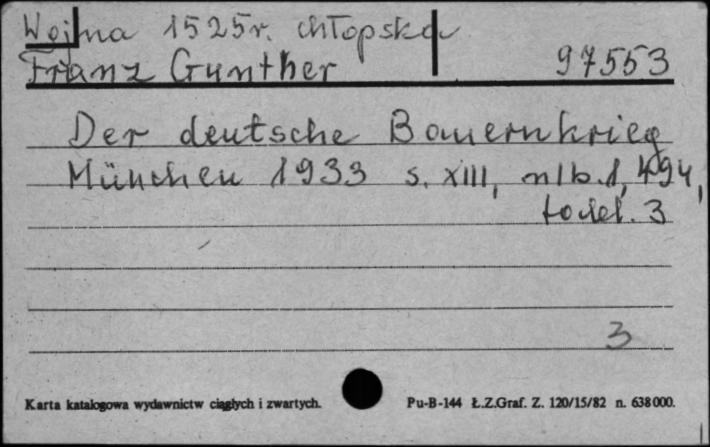 Wojna 1525r. chłopska
Franz Gunther 97553
Der deutsche Bauernkrieg
München 1933 s. XIII, nlb. 1, 494,
todel. 3
3
Karta katalogowa wydawnictw ciągłych i zwartych. Pu-B-144 Ł.Z.Graf. Z. 120/15/82 n. 638000.